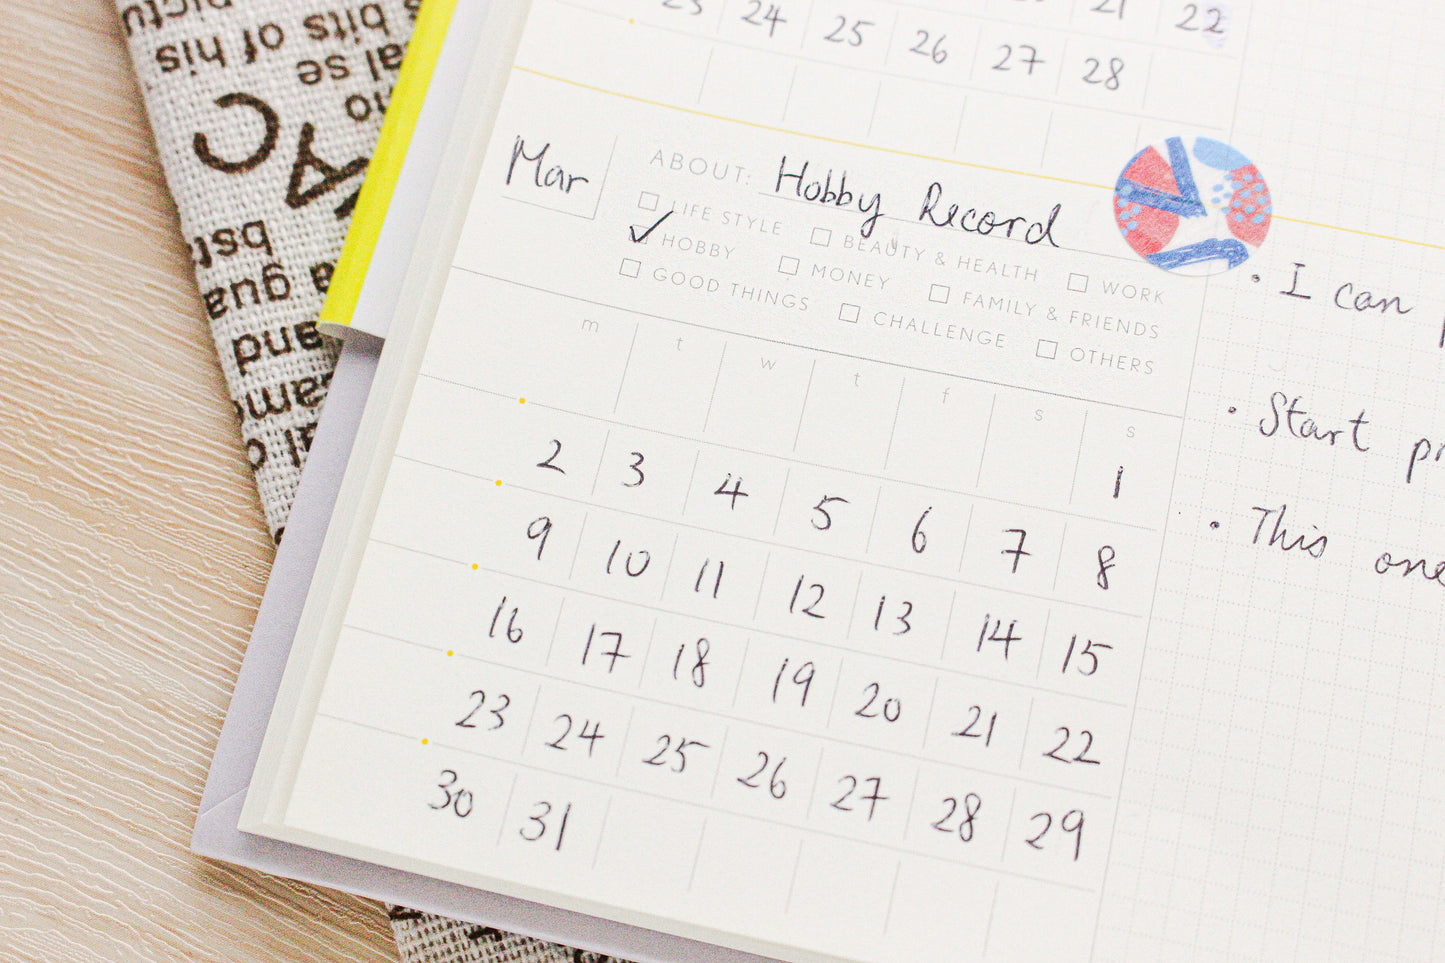 23 24 25 26 27 28
21 22
Mar
ABOUT: Hobby Record
LIFE STYLE BEAUTY & HEALTH WORK
HOBBY MONEY FAMILY & FRIENDS
GOOD THINGS CHALLENGE OTHERS
m t w t f s s
1
2 3 4 5 6 7 8
9 10 11 12 13 14 15
16 17 18 19 20 21 22
23 24 25 26 27 28 29
30 31
• I can
• Start
• This one
bits of his
al se
bst
a gua
and